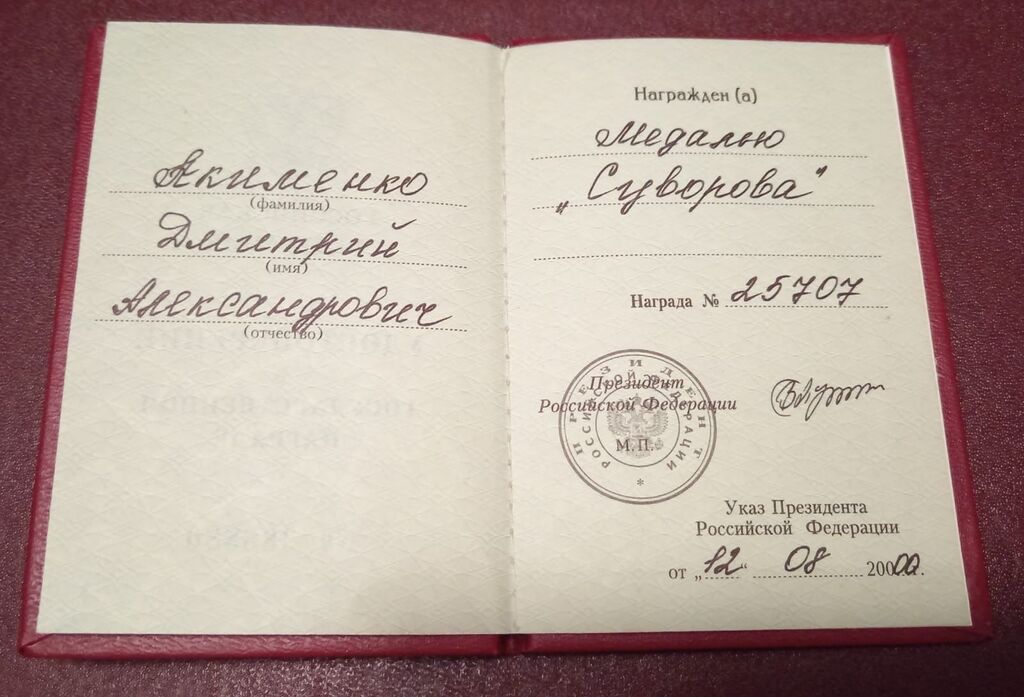 Якименко
(фамилия)
Дмитрий
(имя)
Александрович
(отчество)
Награжден (а)
Медалью
„Суворова"
Награда № 25707
Президент
Российской Федерации
М.П.
ПРЕЗИДЕНТ
РОССИЙСКОЙ ФЕДЕРАЦИИ
*
Указ Президента
Российской Федерации
от „12" 08 2000г.